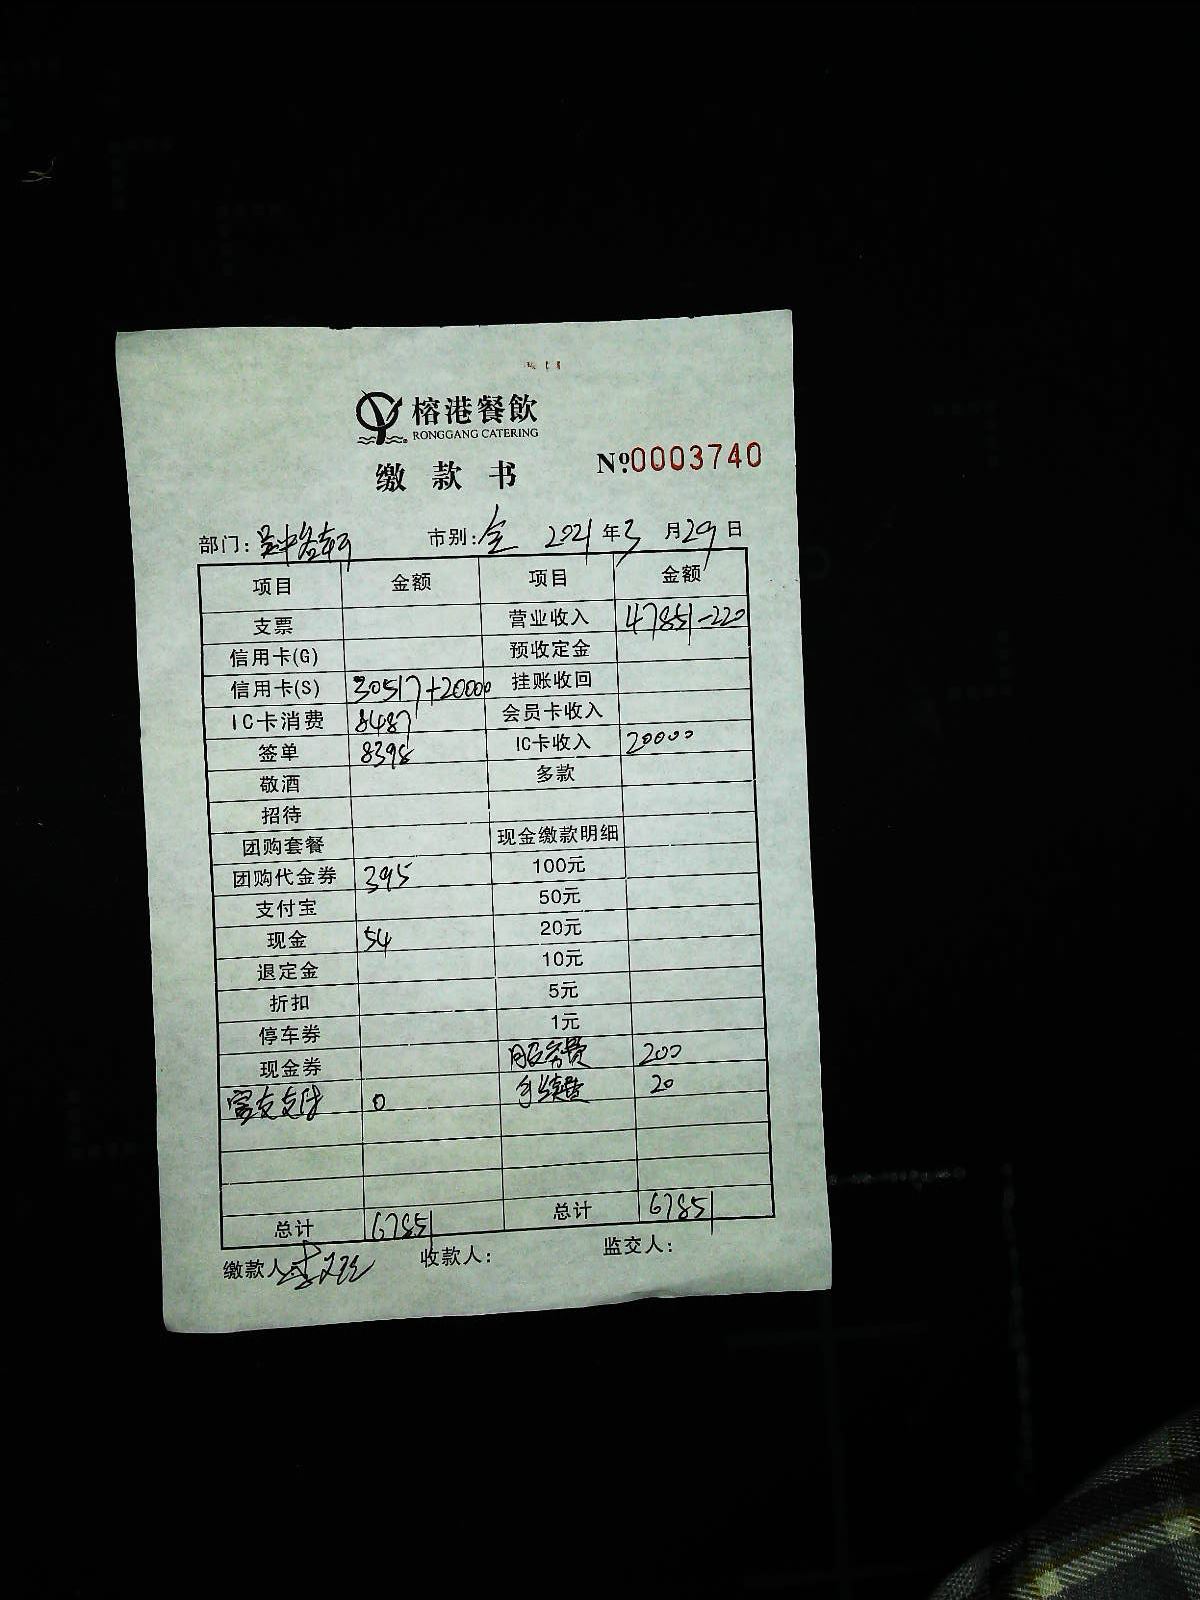 榕港餐飲
RONGGANG CATERING
缴款书
№0003740
部门: 吴中 市别: 全 2021年3月29日
项目 金额 项目 金额
支票 营业收入 47851-220
信用卡(G) 预收定金
信用卡(S) 30517+20000 挂账收回
IC卡消费 8487 会员卡收入
签单 8398 IC卡收入 20000
敬酒 多款
招待
团购套餐 现金缴款明细
团购代金券 395 100元
支付宝 50元
现金 54 20元
退定金 10元
折扣 5元
停车券 1元
现金券 服务费 200
支付 0 手续费 20
总计 67851 总计 67851
缴款人: 收款人: 监交人: